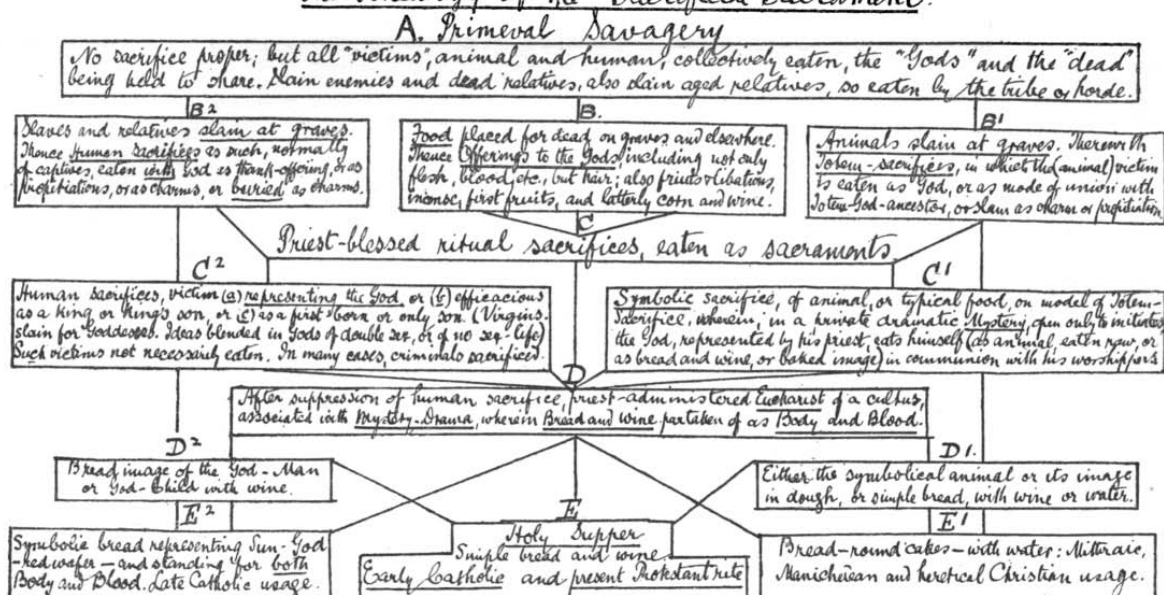 of the Sacrificial Sacrament.
A. Primeval Savagery
No sacrifice proper; but all "victims", animal and human, collectively eaten, the "Gods" and the "dead"
being held to share. Slain enemies and dead relatives, also slain aged relatives, so eaten by the tribe or horde.
B2
Slaves and relatives slain at graves.
Thence Human Sacrifices as such, normally
of captives, eaten with God as thank-offering, or as
propitiations, or as charms, or buried as charms.
B.
Food placed for dead on graves and elsewhere.
Thence Offerings to the Gods, including not only
flesh, blood, etc., but hair; also fruits & libations,
incense, first fruits, and latterly corn and wine.
B1
Animals slain at graves. Therewith
Totem-sacrifices, in which the (animal) victim
is eaten as God, or as mode of union with
Totem-God-ancestor, or slain as charm or propitiation
C
Priest-blessed ritual sacrifices, eaten as sacraments
C2
Human sacrifices, victim (a) representing the God, or (b) efficacious
as a king or king's son, or (c) as a first-born or only son. (Virgins
slain for Goddesses. Ideas blended in Gods of double sex, or of no sex-life)
Such victims not necessarily eaten. In many cases, criminals sacrificed.
C1
Symbolic sacrifice, of animal, or typical food, on model of Totem-
Sacrifice, wherein, in a private dramatic Mystery, open only to initiates
the God, represented by his priest, eats himself (as animal, eaten raw, or
as bread and wine, or baked image) in communion with his worshippers
D
After suppression of human sacrifice, priest-administered Eucharist of a cultus,
associated with Mystery-Drama, wherein Bread and wine partaken of as Body and Blood.
D2
Bread image of the God-Man
or God-Child with wine.
D1.
Either the symbolical animal or its image
in dough, or simple bread, with wine or water.
E2
Symbolic bread representing Sun-God
-red wafer-and standing for both
Body and Blood. Late Catholic usage.
E
Holy Supper
Simple bread and wine
Early Catholic and present Protestant rite
E1
Bread-round cakes-with water: Mithraic,
Manichæan and heretical Christian usage.